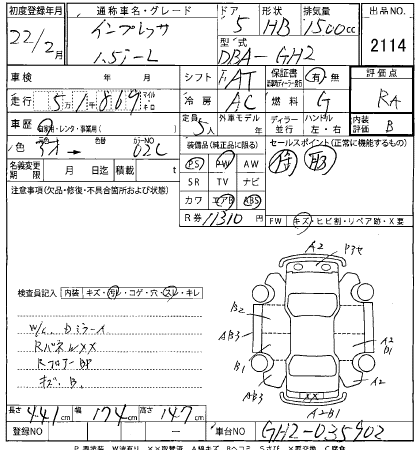 初度登録年月 通称車名・グレード ドア 形状 排気量 出品NO.
22/2月 インプレッサ 5 HB 1500cc
1.5i-L 型式 DBA-GH2 2114
車検 年 月 シフト FAT 保証書 有 無 評価点
走行 5万1千869 マイル キロ 冷房 AC 燃料 G RA
車歴 自家用・レンタ・事業用( ) 定員 5人 外車モデル 年 ディーラー 並行 ハンドル 左・右 内装評価 B
色 アオ → 色替 カラーNO 02C 装備品(純正品に限る) セールスポイント(正常に機能するもの)
名義変更期限 月 日迄 積載 t PS PW AW
注意事項(欠品・修復・不具合箇所および状態) SR TV ナビ
カワ エアB ABS
R券 11310円 FW キズ・ヒビ割・リペア跡・X要
A2
B2
AB3
B1
AB3
A2
B1
A2
XX
A2B1
検査員記入 内装 キズ・汚レ・コゲ・穴・スレ・キレ
W/C Dミラーズ
RパネルXX
RフロアーBP
キズ.B.
長さ 441cm 幅 174cm 高さ 147cm
登録NO 車台NO GH2-035902